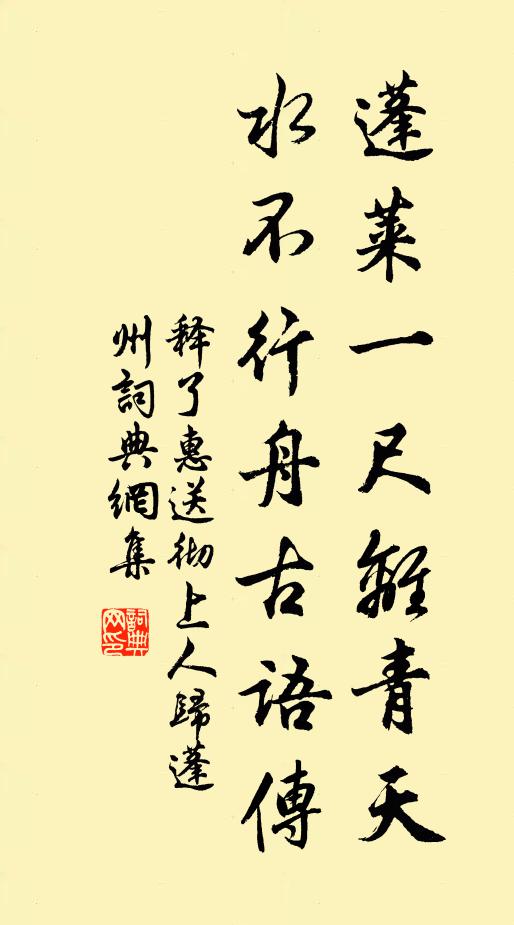 蓬萊一尺離青天
水不行舟古語傳
释了惠送彻上人歸蓬
州詞典網集
詞典
网印